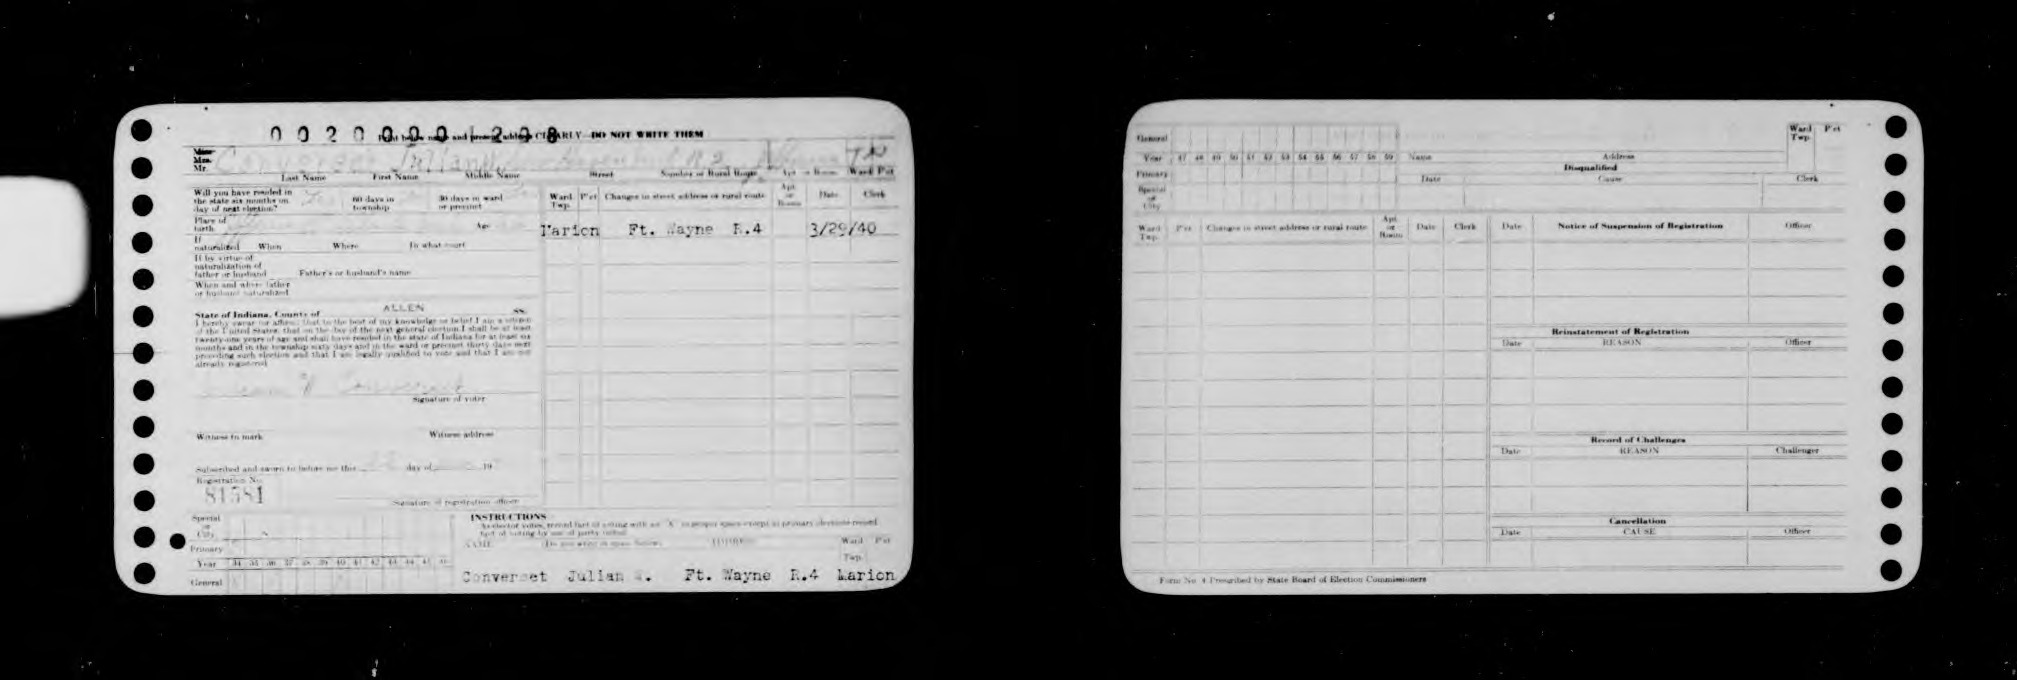 0 0 2 0 0 0 0 1 2 0 8
Print below name and present address CLEARLY—DO NOT WRITE THEM
Miss
Mrs.
Mr. Converset
Last Name First Name Middle Name Street Number or Rural Route Apt. or Room Ward Pct
Will you have resided in the state six months on day of next election? 60 days in township 30 days in ward or precinct
Ward Twp. P'ct Changes in street address or rural route Apt. or Room Date Clerk
Place of birth Age
Marion Ft. Wayne R.4 3/29/40
If naturalized When Where In what court
If by virtue of naturalization of father or husband Father's or husband's name
When and where father or husband naturalized
State of Indiana, County of ALLEN ss.
I hereby swear (or affirm) that to the best of my knowledge or belief I am a citizen
of the United States, that on the day of the next general election I shall be at least
twenty-one years of age and shall have resided in the state of Indiana for at least six
months and in the township sixty days and in the ward or precinct thirty days next
preceding such election and that I am legally qualified to vote and that I am not
already registered.
Converset
Signature of voter
Witness to mark Witness address
Subscribed and sworn to before me this day of 19
Registration No.
81581
Signature of registration officer
Special or City
Primary
Year 34 35 36 37 38 39 40 41 42 43 44 45 46
General
INSTRUCTIONS
As elector votes, record fact of voting with an "X" in proper space except in primary elections record
fact of voting by use of party initial.
NAME Do not write in space below ADDRESS Ward Twp. P'ct
Converset Julian W. Ft. Wayne R.4 Marion
General
Year 47 48 49 50 51 52 53 54 55 56 57 58 59
Primary
Special or City
Name Address
Ward Twp. P'ct
Disqualified
Date Cause Clerk
Ward Twp. P'ct Changes in street address or rural route Apt. or Room Date Clerk
Date Notice of Suspension of Registration Officer
Reinstatement of Registration
Date REASON Officer
Record of Challenges
Date REASON Challenger
Cancellation
Date CAUSE Officer
Form No. 4 Prescribed by State Board of Election Commissioners